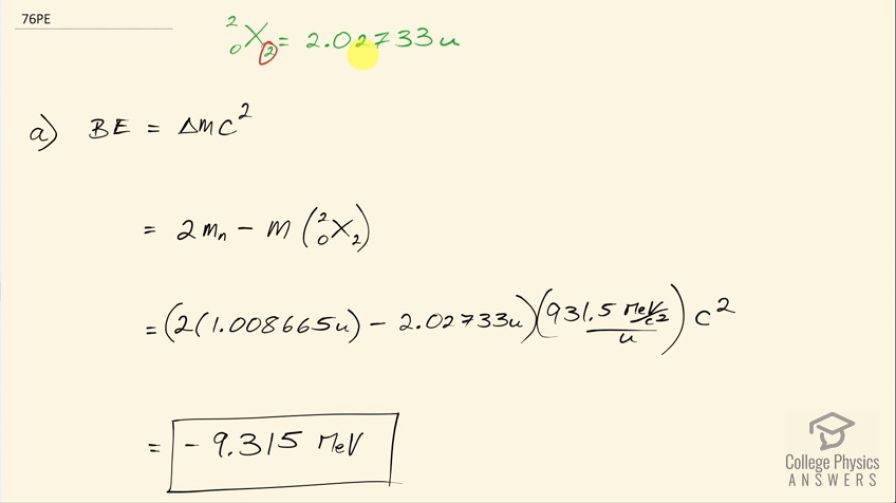 76PE
²₀X₂ = 2.02733u
a) BE = Δmc²
= 2mₙ - m(²₀X₂)
= (2(1.008665u) - 2.02733u)(931.5 MeV/c² / u) c²
= - 9.315 MeV
College Physics
ANSWERS